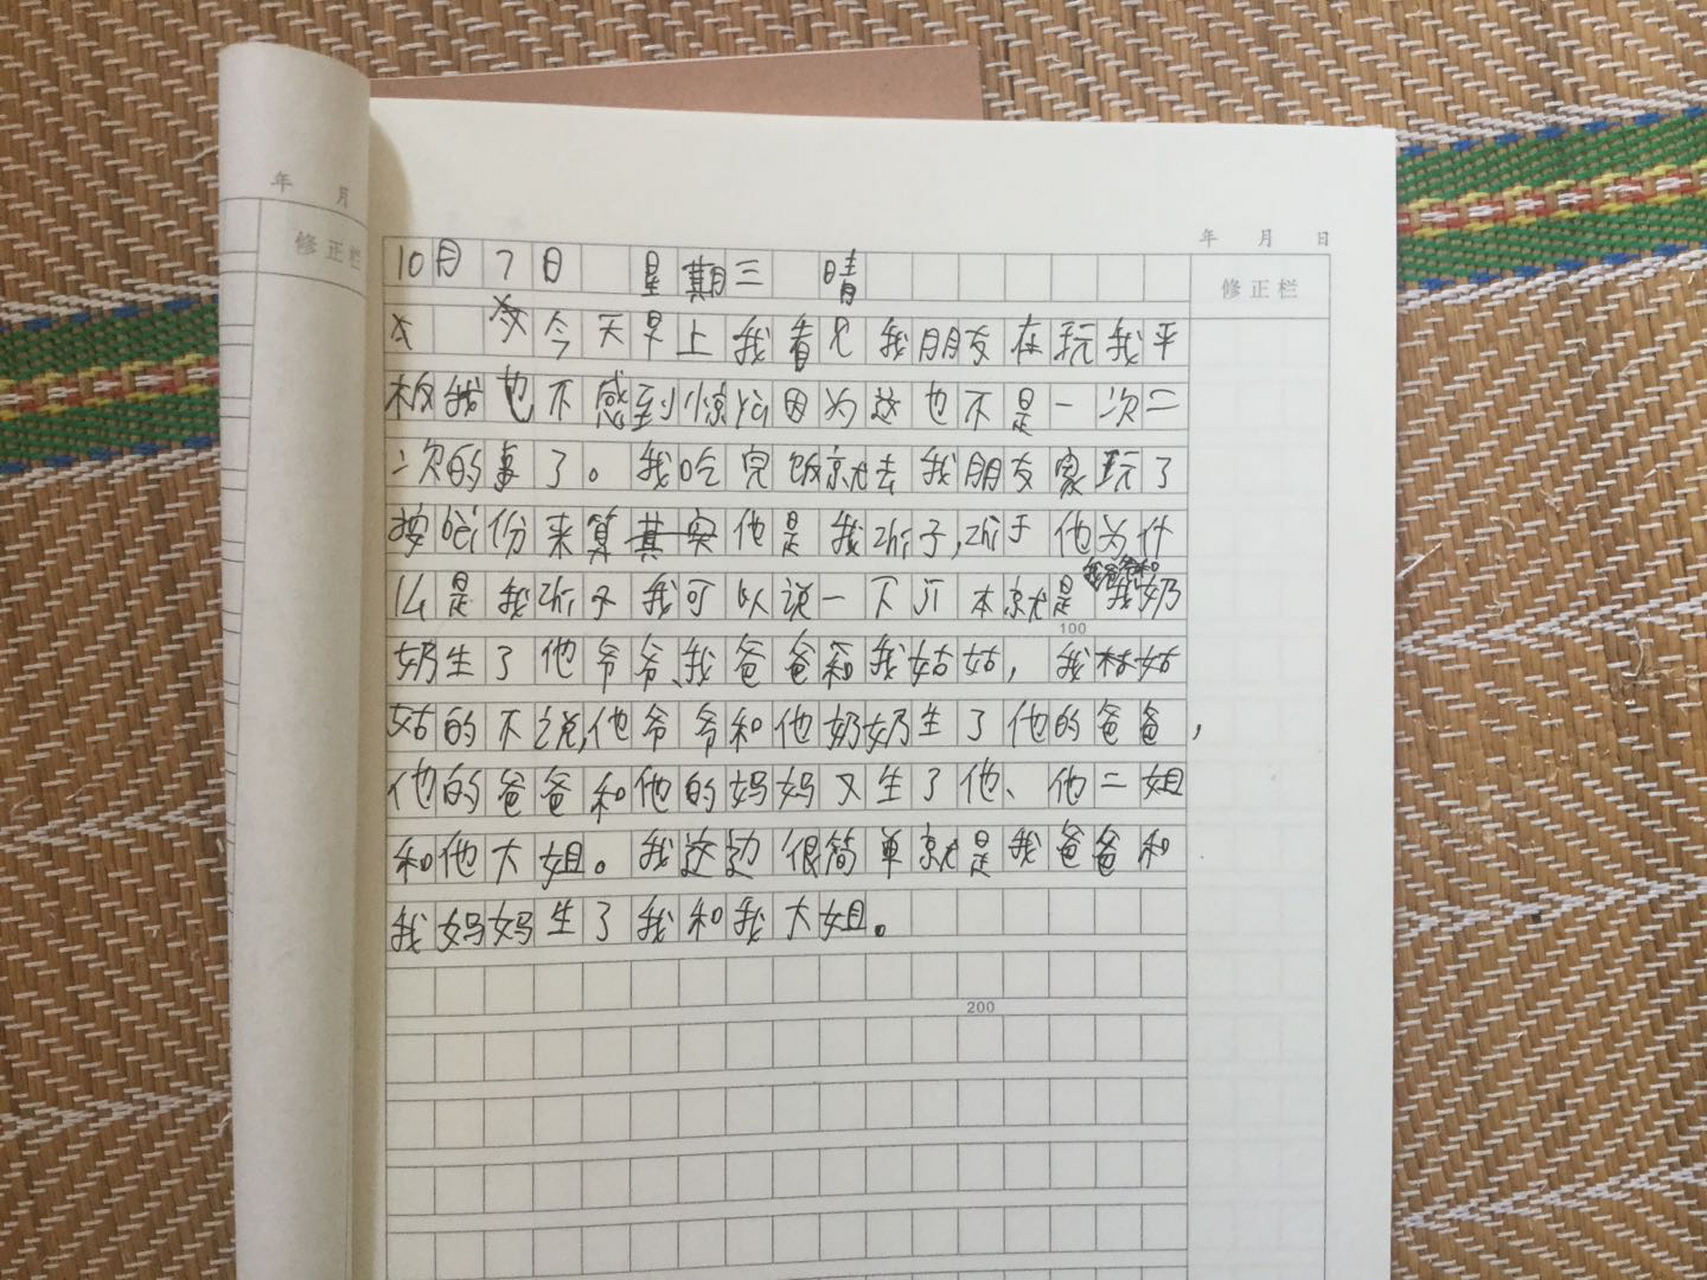 年 月
修正栏
年 月 日
修正栏
10月7日 星期三 晴
今天早上我看见我朋友在玩我平
板我也不感到惊yà因为这也不是一次二
二次的事了。我吃完饭就去我朋友家玩了
按bèi份来算他是我zhí子,zhí于他为什
么是我zhí子我可以说一下
我爸爷和
本就是我奶
100
奶生了他爷爷、我爸爸和我姑姑,我姑
姑的不说,他爷爷和他奶奶生了他的爸爸,
他的爸爸和他的妈妈又生了他、他二姐
和他大姐。我这边很简单就是我爸爸和
我妈妈生了我和我大姐。
200